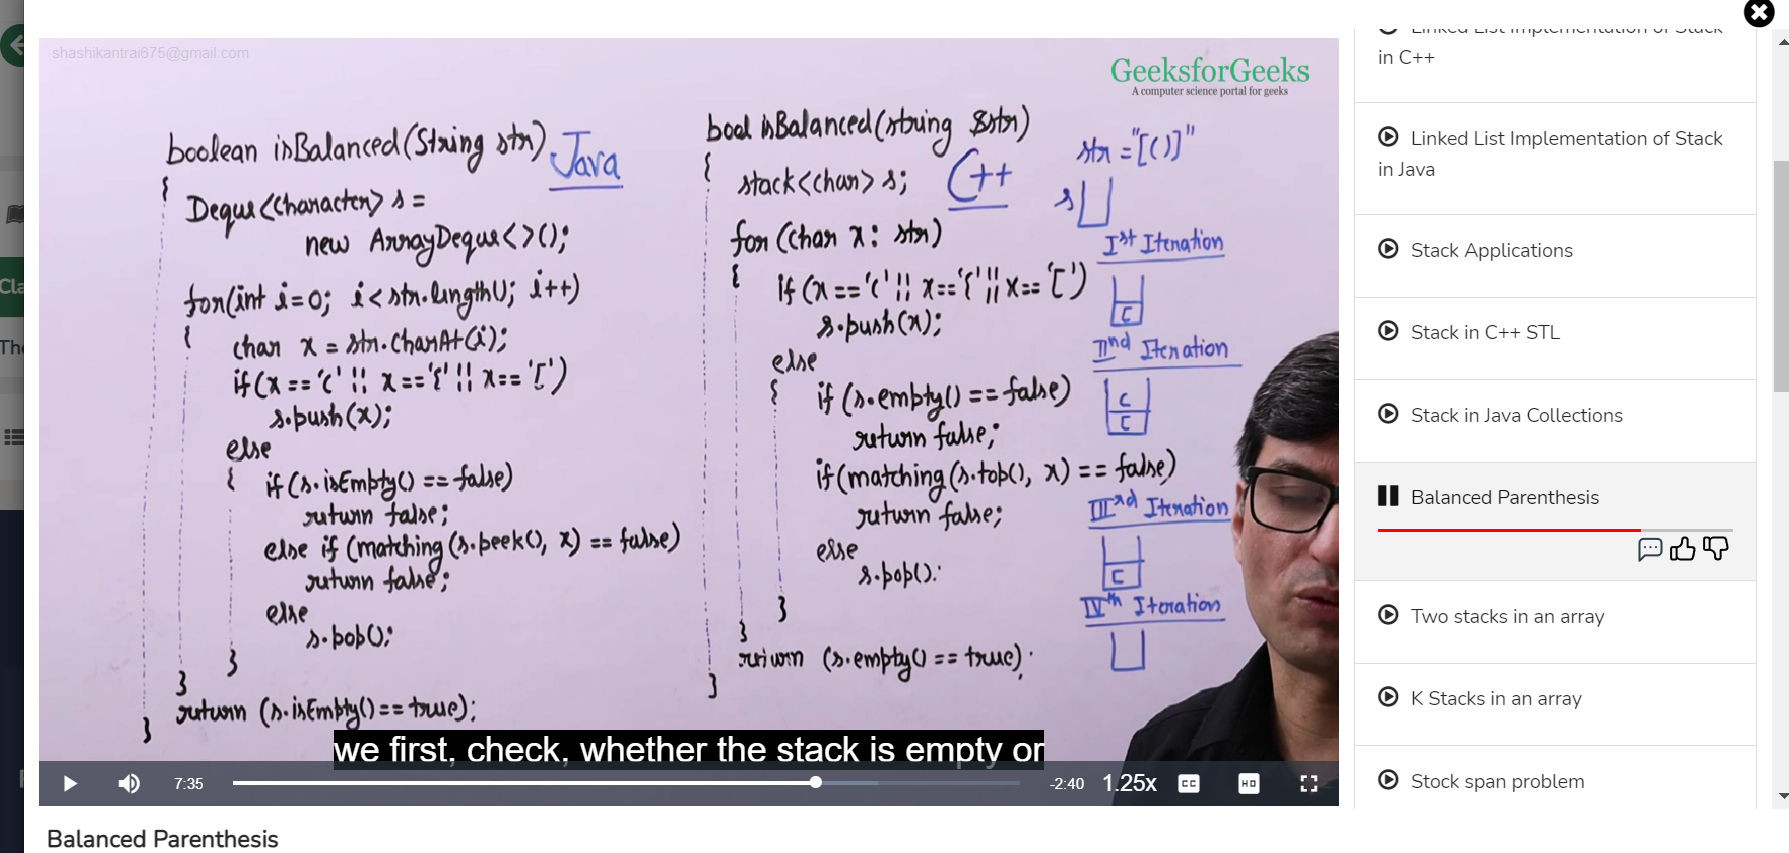 shashikantrai675@gmail.com
GeeksforGeeks
A computer science portal for geeks
boolean isBalanced(String str)
Java
{
Deque<Character> s =
new ArrayDeque<>();
for(int i=0; i<str.length(); i++)
{
char x = str.charAt(i);
if(x=='(' || x=='{' || x=='[')
s.push(x);
else
{
if(s.isEmpty()==false)
return false;
else if (matching(s.peek(), x) == false)
return false;
else
s.pop();
}
}
return (s.isEmpty()==true);
}
bool isBalanced(string &str)
{
stack<char> s;
C++
for (char x: str)
{
if(x=='(' || x=='{' || x=='[')
s.push(x);
else
{
if(s.empty()==false)
return false;
if(matching(s.top(), x) == false)
return false;
else
s.pop();
}
}
return (s.empty()==true);
}
str="[()]"
s
Ist Iteration
[
IInd Iteration
(
[
IIIrd Iteration
[
IVth Iteration
we first, check, whether the stack is empty or
7:35
-2:40
1.25x
CC
HD
Balanced Parenthesis
Linked List Implementation of Stack
in C++
Linked List Implementation of Stack
in Java
Stack Applications
Stack in C++ STL
Stack in Java Collections
Balanced Parenthesis
Two stacks in an array
K Stacks in an array
Stock span problem
Cla
The